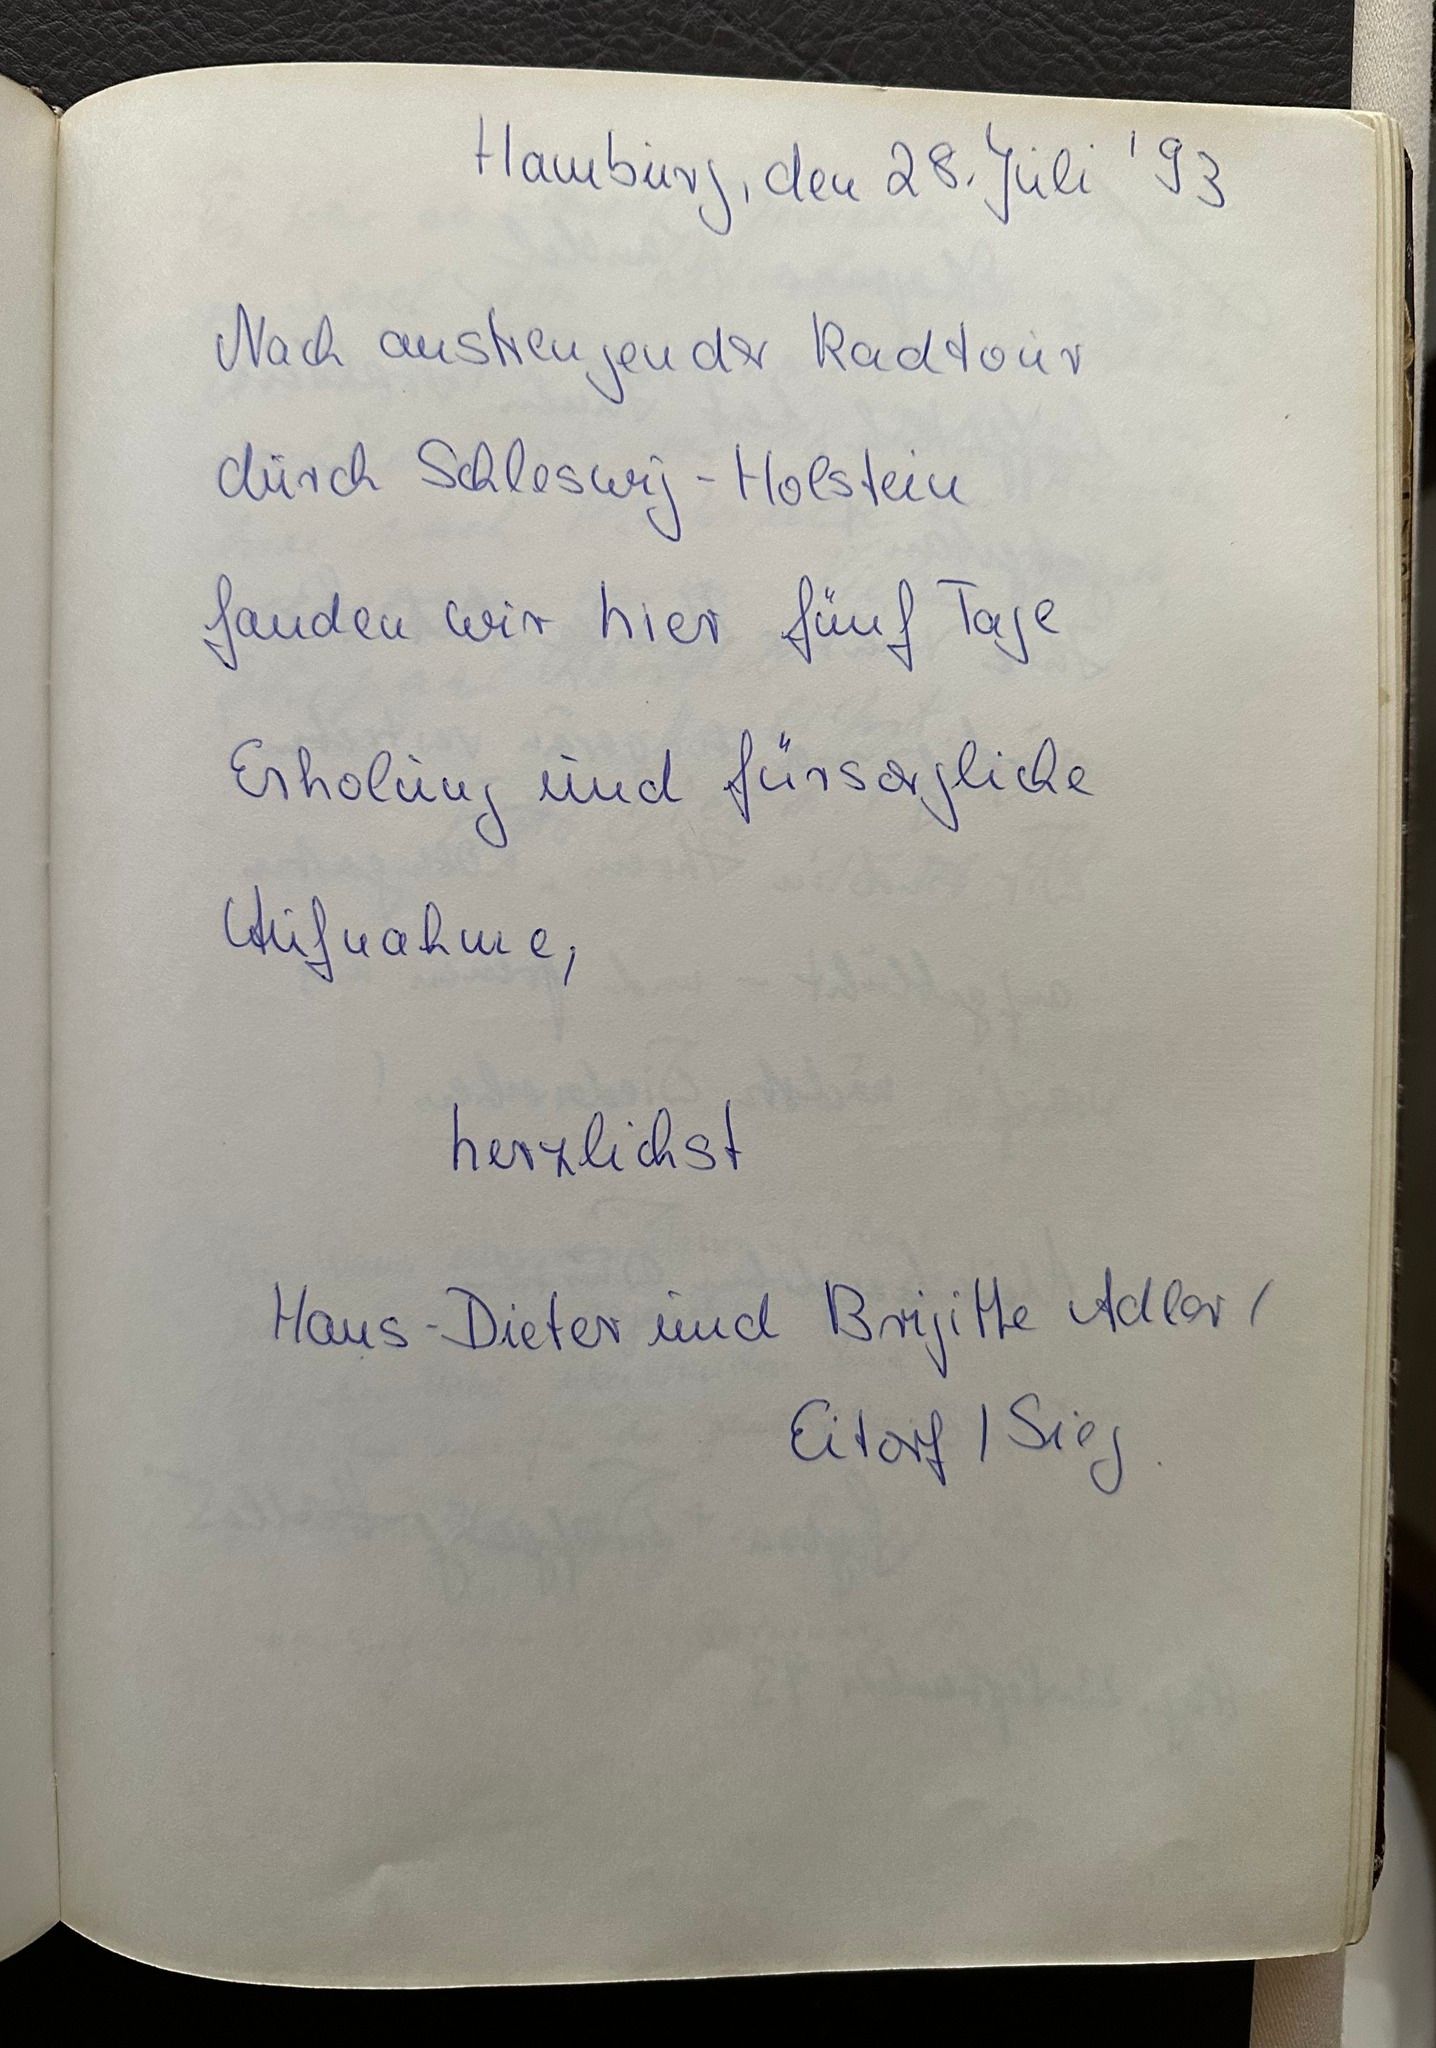 Hamburg, den 28. Juli '93
Nach anstrengender Radtour
durch Schleswig-Holstein
fanden wir hier fünf Tage
Erholung und fürsorgliche
Aufnahme,
herzlichst
Hans-Dieter und Brigitte Adler /
Eitorf / Sieg.